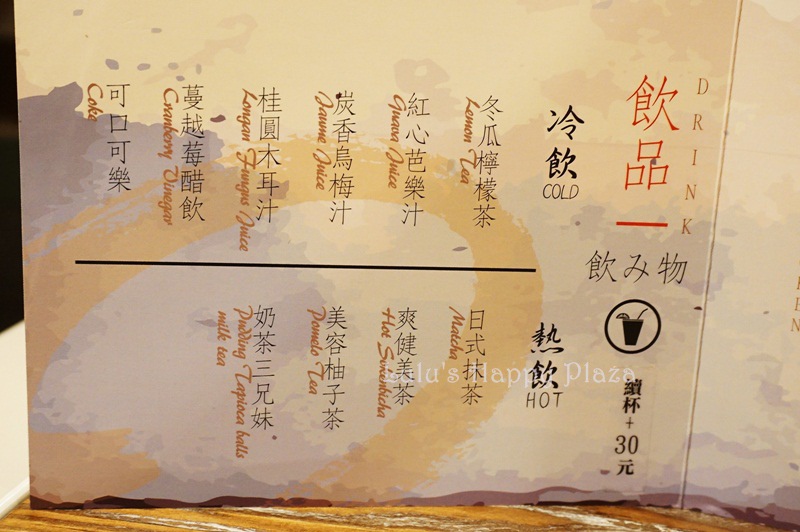 DRINK
飲品
飲み物
續杯+30元
冷飲
COLD
冬瓜檸檬茶
Lemon Tea
紅心芭樂汁
Guava Juice
炭香烏梅汁
Jaune Juice
桂圓木耳汁
Longan Fungus Juice
蔓越莓醋飲
Cranberry Vinegar
可口可樂
Coke
熱飲
HOT
日式抹茶
Matcha
爽健美茶
Hot Sokenbicha
美容柚子茶
Pomelo Tea
奶茶三兄妹
Pudding Tapioca balls
milk tea
Lulu's Happy Plaza